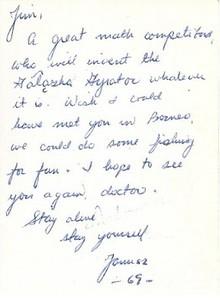 Jim,
A great math competitor,
who will invent the
Galazka Gyrator whatever
it is. Wish I could
have met you in Borneo,
we could do some fishing
for fun. I hope to see
you again, doctor.
Stay alive
stay yourself
Janusz
- 69 -